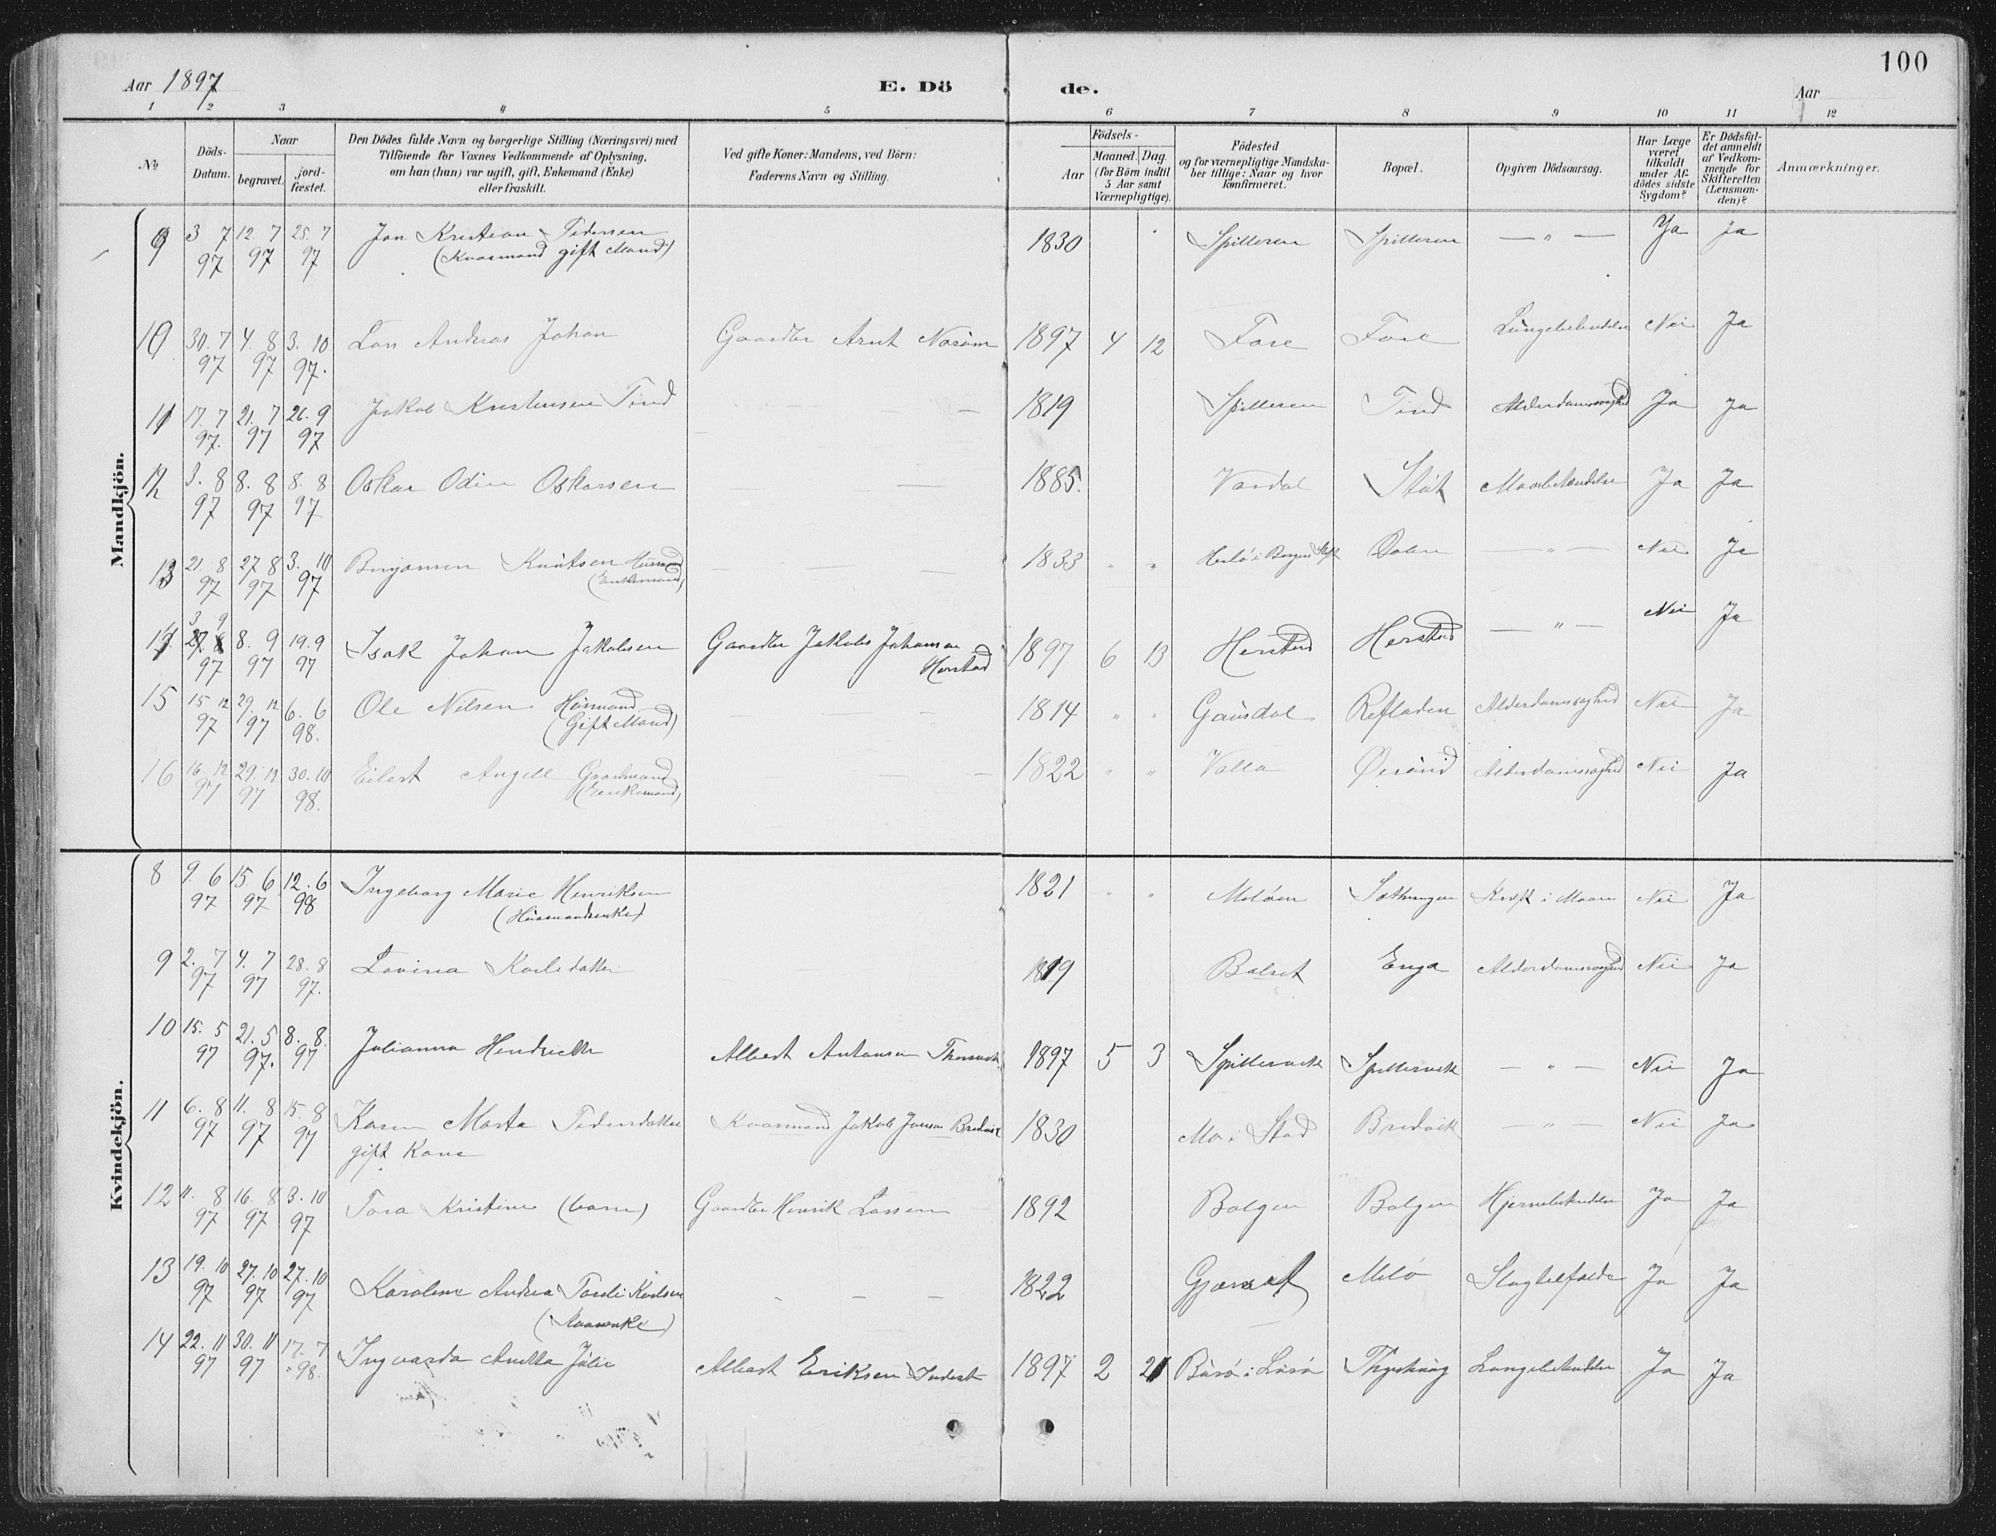 100
Aar 1897 E. Dö de. Aar
1 2 3 4 5 6 7 8 9 10 11 12
No
Döds-Datum.
Naar
begravet.
jord-fæstet.
Den Dödes fulde Navn og borgerlige Stilling (Næringsvei) med
Tilföiende for Voxnes Vedkommende af Oplysning,
om han (hun) var ugift, gift, Enkemand (Enke)
eller fraskilt.
Ved gifte Koner: Mandens, ved Börn:
Faderens Navn og Stilling.
Födsels-
Aar
Maaned. Dag.
(for Börn indtil
5 Aar samt
Værnepligtige).
Födested
og for værnepligtige Mandska-
ber tillige: Naar og hvor
konfirmeret.
Bopæl.
Opgiven Dödsaarsag.
Har Læge
været
tilkaldt
under Af-
dödes sidste
Sygdom?
Er Dödsfal-
det anmeldt
af Vedkom-
mende for
Skifteretten
(Lensman-
den)?
Anmærkninger.
Mandkjön.
9 3 7 97 12 7 97 25 7 97 Jon Kristian Pedersen 1830 Spilleren Spilleren — " — Ja Ja
(Kaarmand gift Mand)
10 30. 7 97 4. 8 97 3. 10 97. Lars Andreas Johan Gaardbr Arnt Norum 1897 4 12 Fore Fore Lungebetændelse Nei Ja
11 17. 7 97. 21. 7 97 26. 9 97 Jakob Kristensen Tind — — 1819 Spilleren Tind Alderdomssvaghed Ja Ja
12 3. 8 97 8. 8 97 8. 8 97 Oskar Odin Oskarsen — — 1885. Vardal Støt Mavebetændelse Ja Ja
13 21. 8 97 27. 8 97 3. 10 97 Benjamin Knutsen Husmand — — 1833 " " Herlø i Bergens Stift Dalen — " — Nei Ja
(Enkemand)
14 3 9 97 8. 9 97 19. 9 97 Isak Johan Jakobsen Gaardbr Jakob Johansen 1897 6 13 Herstad Herstad — " — Nei Ja
Herstad
15 15 12 97 29. 12 97 6. 6 98. Ole Nilsen Husmand — — 1814 " " Gausdal Refladen Alderdomssvaghed Nei Ja
(Gift Mand)
16 16 12 97 29. 12 97 30. 10 98. Eilert Angell Gaardmand — 1822 " " Valla Ørsund Alderdomssvaghed Nei Ja
(Enkemand)
Kvindekjön.
8 9. 6 97 15 6 97 12. 6 98 Ingeborg Marie Henriksen 1821 " " Meløen Sætningen Kræft i Maven Nei Ja
(Husmandsenke)
9 2. 7 97 4. 7 97 28. 8 97. Lovina Karlsdatter 1819 Bolset Enga Alderdomssvaghed Nei Ja
10 15. 5 97 21. 5 97. 8. 8. 97 Julianna Hendrette Albert Antonsen 1897 5 3 Spillervik Spillervik — " — Nei Ja
11 6. 8 97 11. 8 97 15. 8 97 Karen Marta Pedersdatter Kaarmand Jakob Jonsen Bredvik 1830 Mo i Stod Bredvik — " — Nei Ja
gift Kone
12 11. 8 97 16. 8 97 3. 10 97 Tora Kristine (barn) Gaardbr Henrik Larsen 1892 Bolgen Bolgen Hjernebetændelse Ja Ja
13 19. 10 97 27. 10 97 27. 10 97 Karoline Andrea Karlsen — — 1822 Gjerset Melø Slagtilfælde Ja Ja
(Kaarenke)
14 22. 11 97 30. 11 97 17. 7 98. Ingvarda Anetta Julie Albert Eriksen Inderst 1897 2 21 Busø i Lurø Lungebetændelse Ja Ja